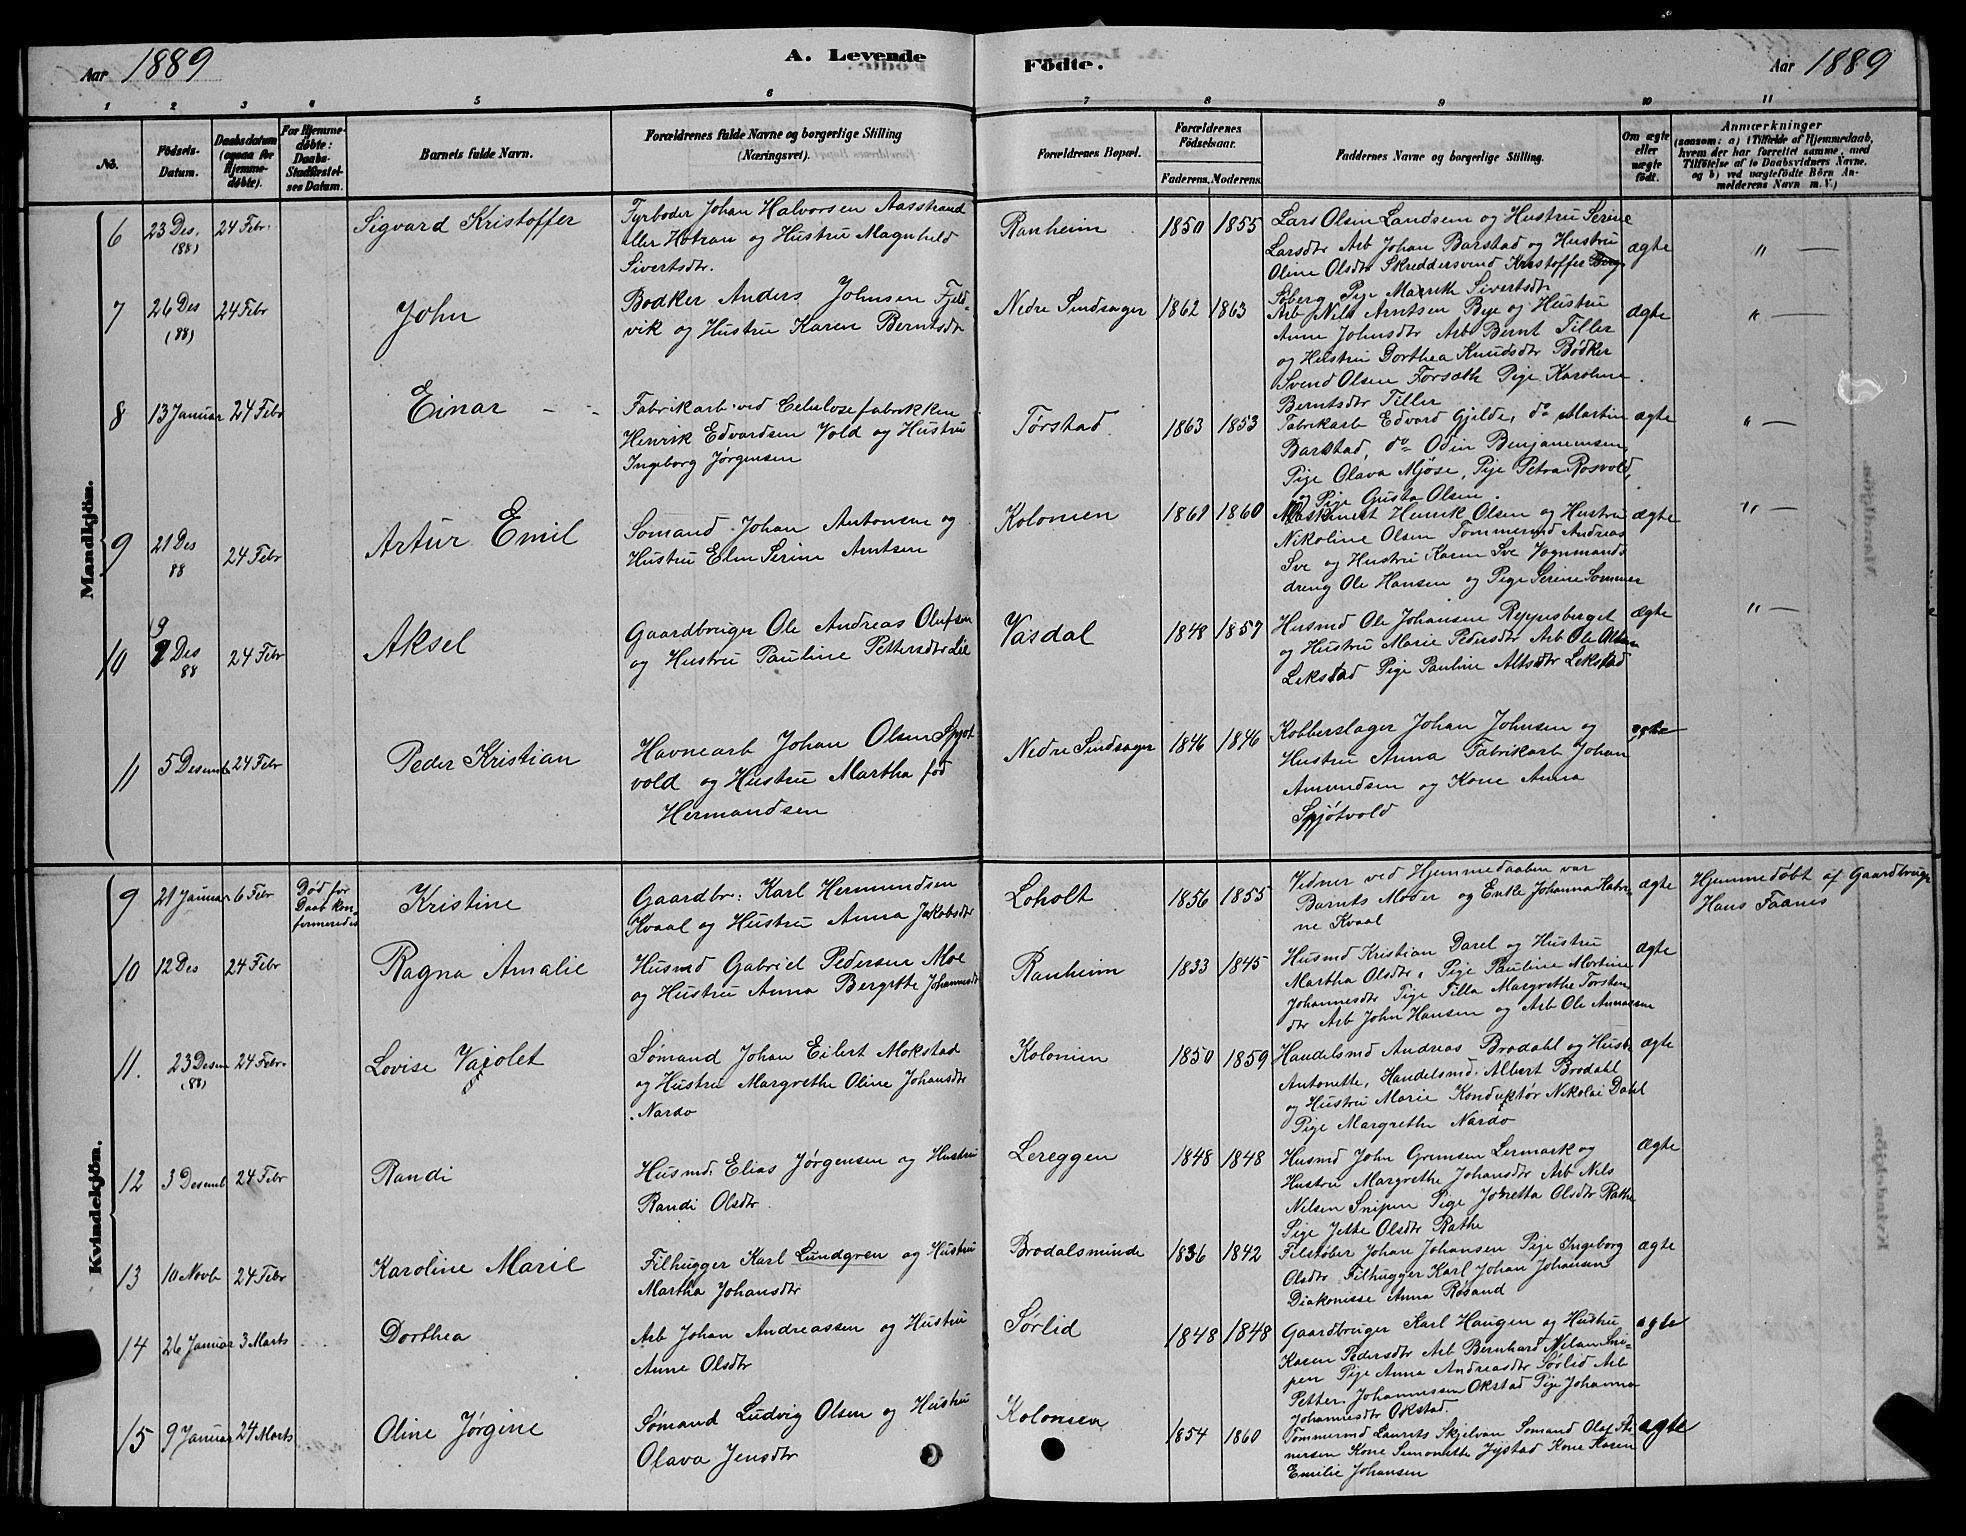 Aar 1889
A. Levende
Födte.
Aar 1889
1 2 3 4 5 6 7 8 9 10 11
No.
Födsels-
Datum.
Daabsdatum
(ogsaa for
Hjemme-
döbte).
For Hjemme-
döbte:
Daabs-
Stadfæstel-
ses Datum.
Barnets fulde Navn.
Forældrenes fulde Navne og borgerlige Stilling
(Næringsvei).
Forældrenes Bopæl.
Forældrenes
Födselsaar.
Faderens. Moderens.
Faddernes Navne og borgerlige Stilling.
Om ægte
eller
uægte
födt.
Anmærkninger
(saasom: a) i Tilfælde af Hjemmedaab,
hvem der har forrettet samme, med
Tilföielse af to Daabsvidners Navne.
og b) ved uægtefödte Börn An-
melderens Navn m. V.)
Mandkjön.
6
23 Des.
(88)
24 Febr.
Sigvard Kristoffer
Fyrböder Johan Halvorsen Aasstrand
eller Hotran og Hustru Magnhild
Sivertsdtr.
Ranheim
1850 1855
Lars Olsen Landsem og Hustru Serine
Larsdtr Arb Johan Barstad og Hustru
Oline Olsdtr Skreddersvend Kristoffer Berg
Søberg Pige Marith Sivertsdtr
ægte
" —
7
26 Des
(88)
24 Febr
John
Bødker Anders Johnsen Fjeld-
vik og Hustru Karen Berntsdtr
Nedre Sindsager
1862 1863
Arb Nils Arntsen Bye og Hustru
Anne Johnsdtr Arb Bernt Tiller
og Hustru Dorthea Knudsdtr Bødker
Svend Olsen Forsæth Pige Karoline
Berntsdtr Tiller
ægte
" —
8
13 Januar 24 Febr
Einar — -
Fabrikarb. ved Celulosefabrikken
Henrik Edvardsen Vold og Hustru
Ingeborg Jørgensen
Tørstad
1863 1853
Fabrikarb Edvard Gjelde, do Martin
Barstad, do Odin Benjaminsen
Pige Olava Mjøse, Pije Petra Rosvold,
og Pige Gusta Olsen.
ægte
" —
9
21 Des
88
24 Febr
Artur Emil
Sømand Johan Antonsen og
Hustru Elen Serine Arntsen
Kolonien
1861 1860
Maskinist Henrik Olsen og Hustru
Nikoline Olsen Tømmermd Andreas
Sve og Hustru Karen Sve Vognmands
dreng Ole Hansen og Pige Serine Sommer
ægte
" —
10
9
Des
88
24 Febr
Aksel
Gaardbruger Ole Andreas Olufsen
og Hustru Pauline Pettersdtr Lie
Vasdal
1848 1857
Husmd Ole Johansen Reppesberget
og Hustru Marie Pedersdtr Arb Ole Olsen
Lekstad Pige Pauline Altsdtr Lekstad
ægte
" —
11
5 Desemb 24 Febr
Peder Kristian
Havnearb Johan Olsen Spjot
vold og Hustru Martha fød
Hermandsen
Nedre Sindsager
1846 1846
Kobberslager Johan Johnsen og
Hustru Anna Fabrikarb Johan
Amundsen og Kone Anna
Spjøtvold
ægte
Kvindekjön.
9
21 Januar 6 Febr
Død før
Daab kon-
firmeredes
Kristine
Gaardbr: Karl Hermundsen
Kvaal og Hustru Anna Jakobsdtr
Loholt
1856 1855
Vidner ved Hjemmedaaben var
Barnets Moder og Enke Johanna Katri-
ne Kvaal
ægte
Hjemmedøbt af Gaardbruger
Hans Faanes
10
12 Des
24 Febr
Ragna Amalie
Husmd Gabriel Pedersen Moe
og Hustru Anna Bergitte Johannesdtr
Ranheim
1833 1845
Husmd Kristian Darel og Hustru
Martha Olsdtr, Pige Pauline Martine
Johannesdtr Pige Tilla Margrethe Torsten
dtr Arb John Hansen og Arb Ole Arnassen
ægte
11.
23 Desem
(88)
24 Febr.
Lovise Vaiolet
Sømand Johan Eilert Mokstad
og Hustru Margrethe Oline Johansdtr
Nardo
Kolonien
1850 1859
Handelsmd Andreas Brodahl og Hustr
Antonette, Handelsmd. Albert Brodahl
og Hustru Marie Konduktør Nikolai Dahl
Pige Margrethe Nardo
ægte
12
3 Desemb 24 Febr
Randi
Husmd. Elias Jørgensen og Hustru
Randi Olsdtr.
Lereggen
1848 1848
Husmd John Grunsen Lermark og
Hustru Margrethe Johansdtr Arb Nils
Nilsen Snipen Pige Johretta Olsdtr Rathe
Pige Jette Olsdtr Rathe
ægte
13
10 Novb 24 Febr
Karoline Marie
Filhugger Karl Lundgren og Hustru
Martha Johansdtr
Brodalsminde
1836 1842
Filstøber Johan Johansen Pije Ingeborg
Olsdtr Filhugger Karl Johan Johansen
Diakonisse Anna Røsand
ægte
14
26 Januar 3 Marts
Dorthea
Arb Johan Andreassen og Hustru
Anne Olsdtr
Sørlid
1848 1848
Gaardbruger Karl Haugen og Hustru
Karen Pedersdtr Arb Bernhard Nilsen Sni-
pen Pije Anna Andreasdtr Sørlid Arb
Petter Johannessen Okstad Pije Johanna
Johannesdtr Okstad
ægte
15
9 Januar 24 Marts
Oline Jørgine
Sømand Ludvig Olsen og Hustru
Olava Jensdtr
Kolonien
1854 1860
Tømmermd Laurits Skjelvan Sømand Olaf Ste-
nersen Kone Simonette Jystad Kone Karen
Emilie Johansen
ægte